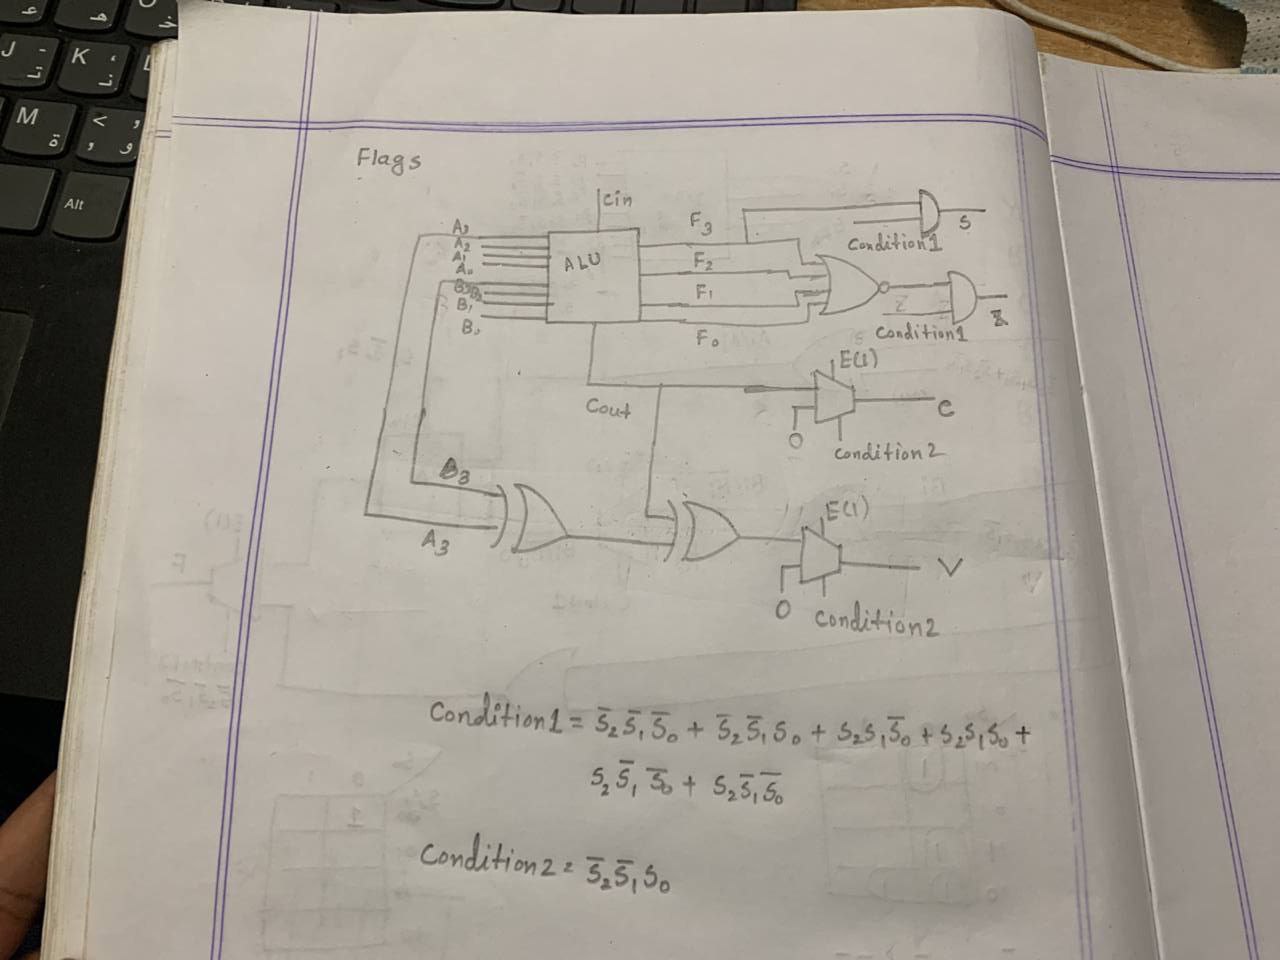 J
K
M
<
Alt
Flags
Cin
A₃
A₂
A₁
A₀
B₃
B₂
B₁
B₀
ALU
F₃
F₂
F₁
F₀
S
Condition1
Z
Condition1
Z
Cout
E(1)
0
C
Condition2
B₃
A₃
E(1)
0
V
Condition2
Condition1 = S̅₂S̅₁S̅₀ + S̅₂S̅₁S₀ + S₂S₁S̅₀ + S₂S₁S₀ +
S₂S̅₁S̅₀ + S₂S̅₁S̅₀
Condition2 = S̅₂S̅₁S₀